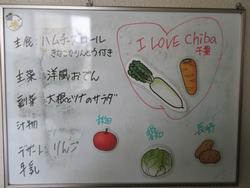 主食：ハムチーズロール
きなこかりんとう付き
主菜：洋風おでん
副菜：大根とツナのサラダ
汁物
デザート：りんご
牛乳
I LOVE Chiba
千葉
秋田
愛知
長崎